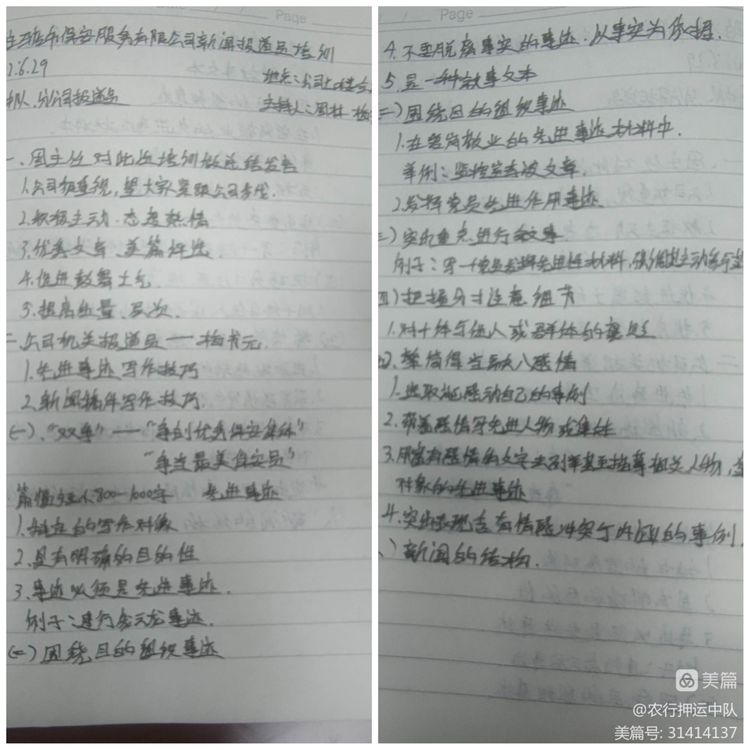 保安服务有限公司新闻报道员培训
.6.29
地点:公司
队.分公司报道员
主持人:周林
一、周主任对此次培训做总结发言
1.公司极重视,望大家
2.积极主动.态度热情
3.优秀文章.美篇评选
4.促进鼓舞士气
5.提高质量.层次.
二、公司机关报道员——
1.先进事迹写作技巧
2.新闻稿件写作技巧.
(一)."双争"——"争创优秀保安集体"
"争当最美保安员"
篇幅 800-1000字 先进事迹
1.独立的写作对象
2.具有明确的目的性
3.事迹必须是先进事迹.
例子:建行 事迹.
(二)围绕目的组织事迹
Page
4.不要脱离事实的事迹.以事实为依据.
5.是一种叙事文本
二)围绕目的组织事迹
1.在爱岗敬业的先进事迹材料中.
举例:监控室 文章.
2.发挥党员先进作用事迹
三)突出重点进行叙事
例子:写一党员 先进性材料,
四)把握分寸注意细节
1.对个体与他人或群体的
.笔简得当融入感情
1.选取能感动自己的事例
2.带着感情写先进人物或集体
3.用富有感情的文字去 相关人物,
对象的先进事迹
4.突出表现 有情感冲突 的事例.
)新闻的结构.
Page
美篇
@农行押运中队
美篇号: 31414137